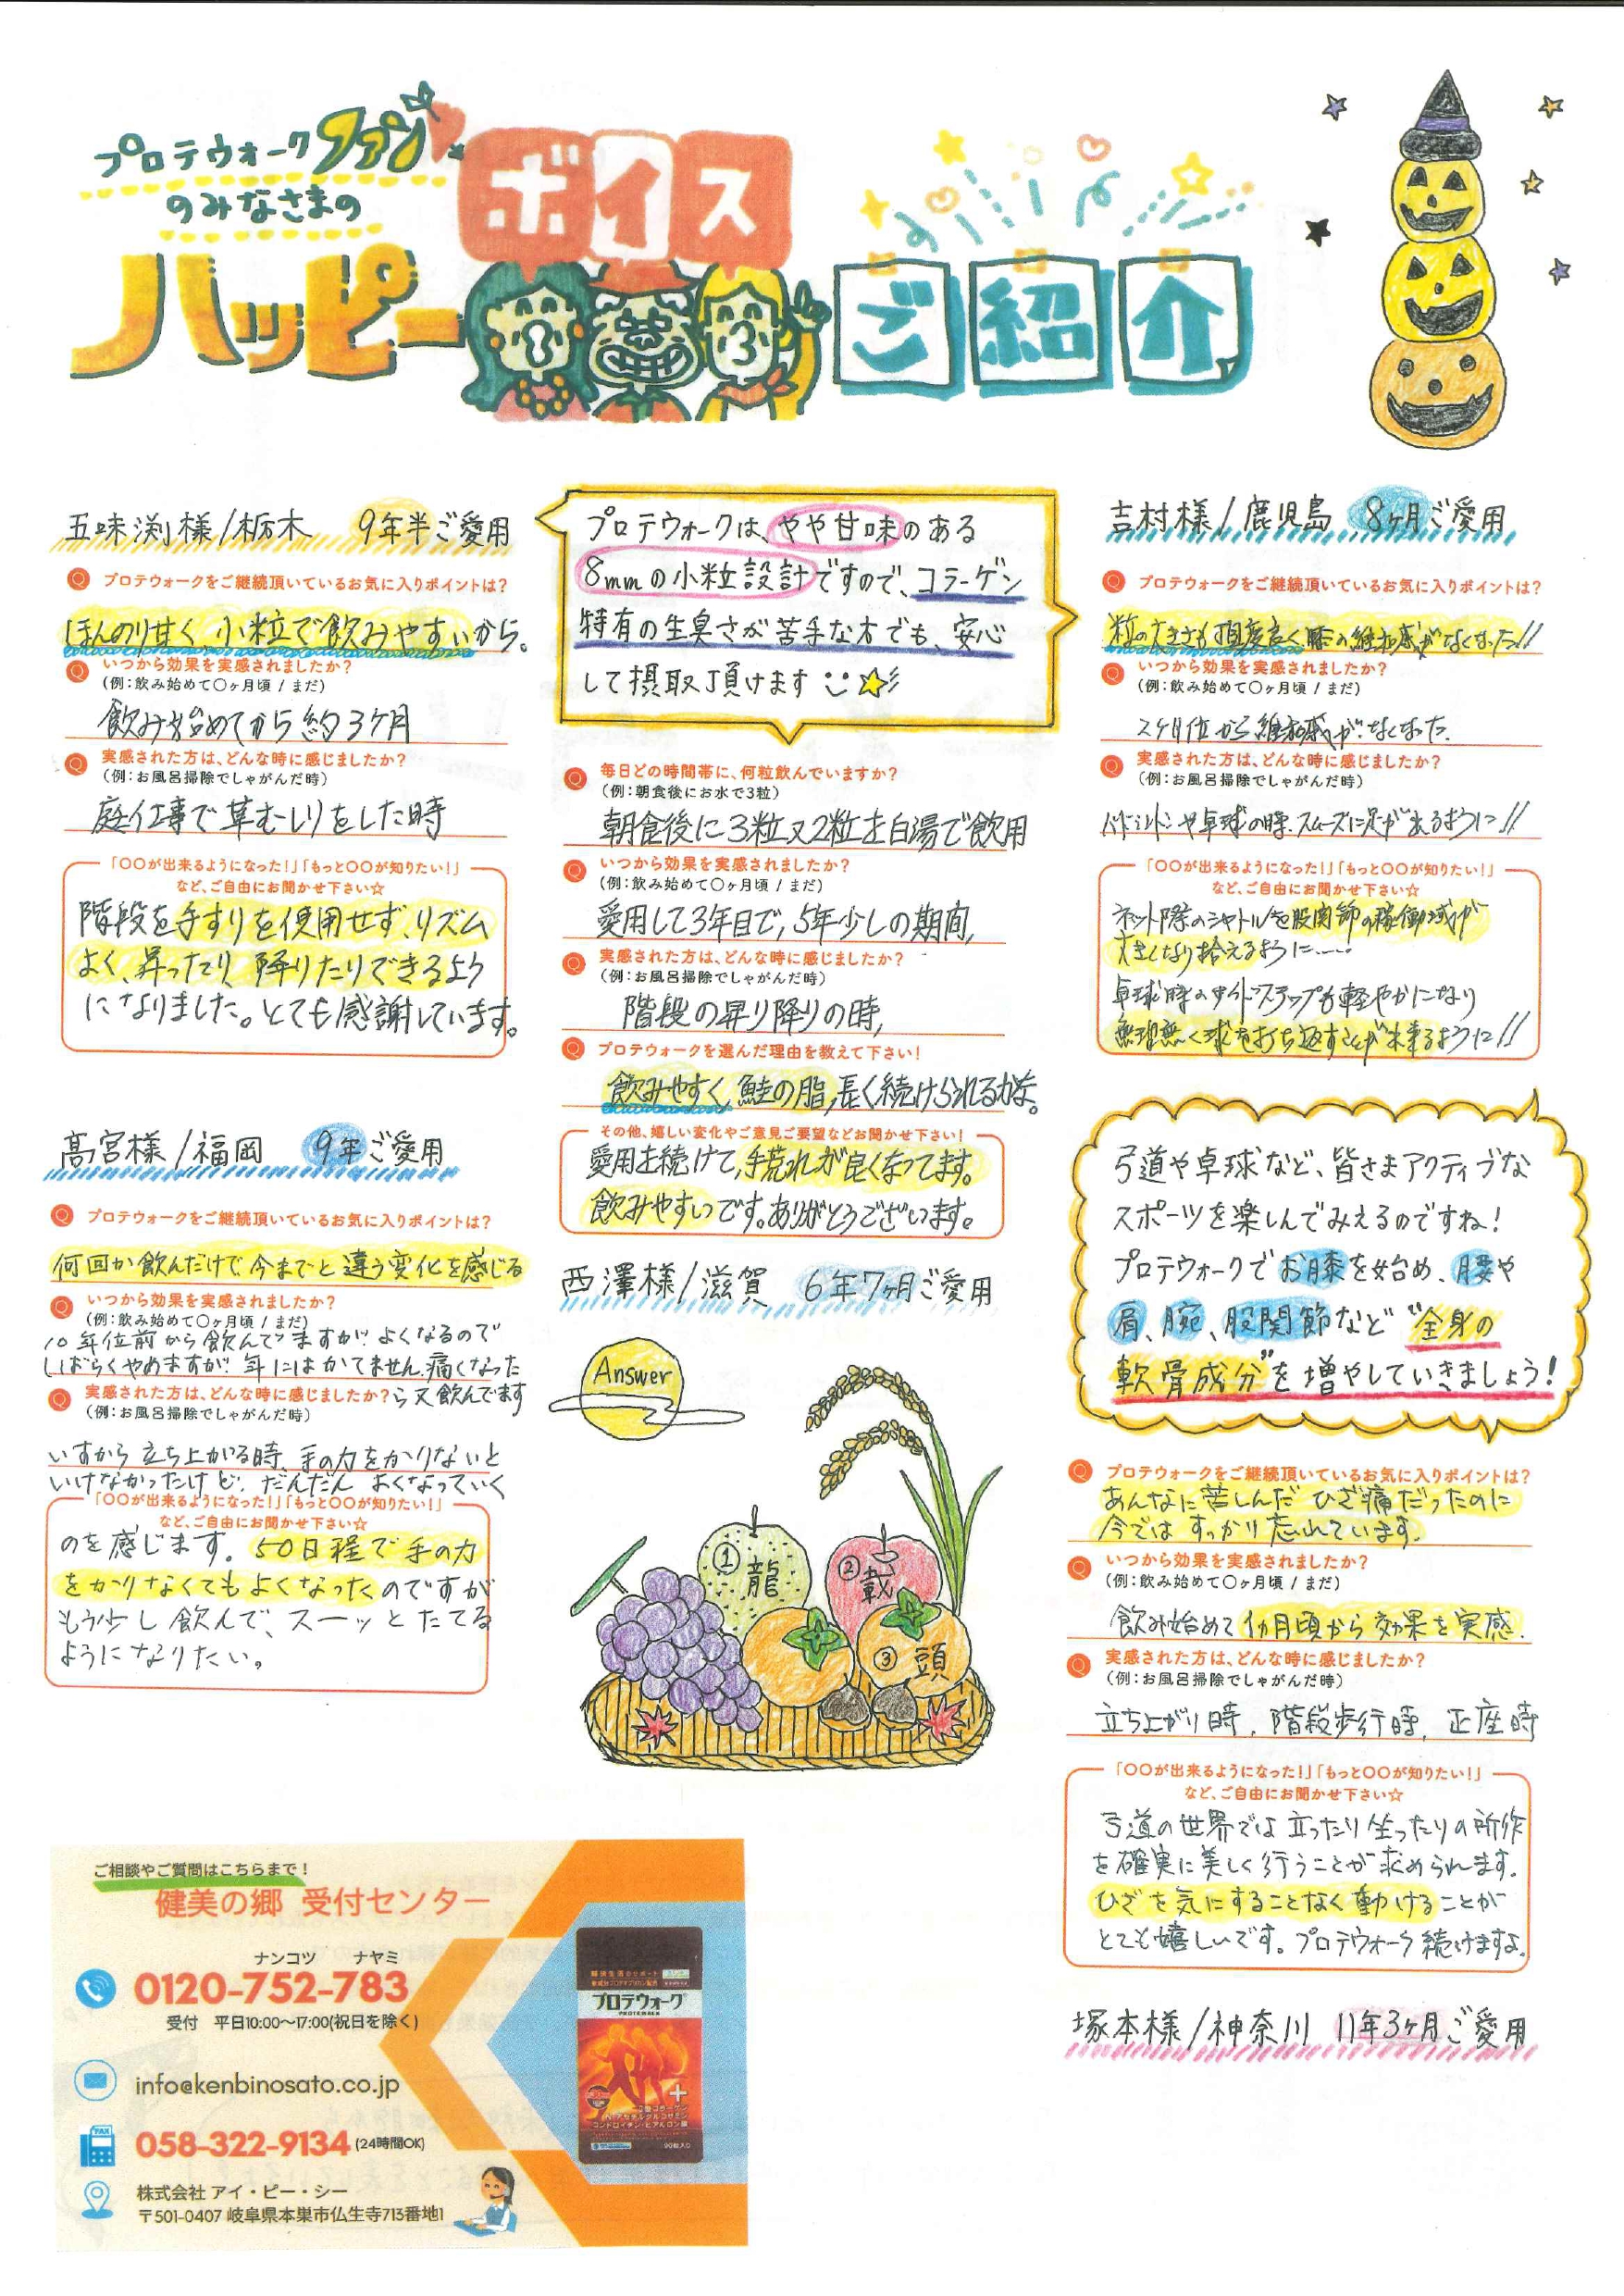 プロテウォークファン
のみなさまの
ハッピーボイス
ご紹介
五味渕様/栃木 9年半ご愛用
Q プロテウォークをご継続頂いているお気に入りポイントは?
ほんのり甘く小粒で飲みやすいから。
Q いつから効果を実感されましたか?
(例:飲み始めて○ヶ月頃 / まだ)
飲み始めてから約3ヶ月
Q 実感された方は、どんな時に感じましたか?
(例:お風呂掃除でしゃがんだ時)
庭仕事で草むしりをした時
「○○が出来るようになった!」「もっと○○が知りたい!」
など、ご自由にお聞かせ下さい☆
階段を手すりを使用せず、リズム
よく、昇ったり、降りたりできるよう
になりました。とても感謝しています。
髙宮様/福岡 9年ご愛用
Q プロテウォークをご継続頂いているお気に入りポイントは?
何回か飲んだけで今までと違う変化を感じる
Q いつから効果を実感されましたか?
(例:飲み始めて○ヶ月頃 / まだ)
10年位前から飲んでますが よくなるので
しばらくやめますが 年にはかてません。痛くなった
Q 実感された方は、どんな時に感じましたか?ら又飲んでます
(例:お風呂掃除でしゃがんだ時)
いすから立ち上がる時、手の力をかりないと
いけなかったけど、だんだん よくなっていく
「○○が出来るようになった!」「もっと○○が知りたい!」
など、ご自由にお聞かせ下さい☆
のを感じます。50日程で手の力
をかりなくてもよくなったのですが
もう少し飲んで、スーッとたてる
ようになりたい。
プロテウォークは、やや甘味のある
8mmの小粒設計ですので、コラーゲン
特有の生臭さが苦手な方でも、安心
して摂取頂けます
Q 毎日どの時間帯に、何粒飲んでいますか?
(例:朝食後にお水で3粒)
朝食後に3粒又2粒を白湯で飲用
Q いつから効果を実感されましたか?
(例:飲み始めて○ヶ月頃 / まだ)
愛用して3年目で、5年少しの期間、
Q 実感された方は、どんな時に感じましたか?
(例:お風呂掃除でしゃがんだ時)
階段の昇り降りの時、
Q プロテウォークを選んだ理由を教えて下さい!
飲みやすく、鮭の脂、長く続けられるかな。
その他、嬉しい変化やご意見ご要望などお聞かせ下さい!
愛用を続けて、手荒れが良くなってます。
飲みやすいつです。ありがとうございます。
西澤様/滋賀 6年7ヶ月ご愛用
Answer
①龍
②戴
③頭
吉村様/鹿児島 8ヶ月ご愛用
Q プロテウォークをご継続頂いているお気に入りポイントは?
粒の大きさも丁度良く膝の違和感がなくなった!!
Q いつから効果を実感されましたか?
(例:飲み始めて○ヶ月頃 / まだ)
2ヶ月位から違和感がなくなった。
Q 実感された方は、どんな時に感じましたか?
(例:お風呂掃除でしゃがんだ時)
バドミントンや卓球の時、スムーズに足が出るように!!
「○○が出来るようになった!」「もっと○○が知りたい!」
など、ご自由にお聞かせ下さい☆
ネット際のシャトルを股関節の稼働域が
大きくなり拾えるように……
卓球時のサイドステップも軽やかになり
無理無く球を打ち返すことが出来るように!!
弓道や卓球など、皆さまアクティブな
スポーツを楽しんでみえるのですね!
プロテウォークでお膝を始め、腰や
肩、腕、股関節など"全身の
軟骨成分"を増やしていきましょう!
Q プロテウォークをご継続頂いているお気に入りポイントは?
あんなに苦しんだ ひざ痛だったのに
今では すっかり忘れています。
Q いつから効果を実感されましたか?
(例:飲み始めて○ヶ月頃 / まだ)
飲み始めて1ヵ月頃から効果を実感。
Q 実感された方は、どんな時に感じましたか?
(例:お風呂掃除でしゃがんだ時)
立ち上がり時、階段歩行時、正座時
「○○が出来るようになった!」「もっと○○が知りたい!」
など、ご自由にお聞かせ下さい☆
弓道の世界では立ったり坐ったりの所作
を確実に美しく行うことが求められます。
ひざを気にすることなく動けることが
とても嬉しいです。プロテウォーク続けますよ。
塚本様/神奈川 11年3ヶ月ご愛用
ご相談やご質問はこちらまで!
健美の郷 受付センター
ナンコツ ナヤミ
0120-752-783
受付 平日10:00〜17:00(祝日を除く)
info@kenbinosato.co.jp
FAX
058-322-9134 (24時間OK)
株式会社 アイ・ピー・シー
〒501-0407 岐阜県本巣市仏生寺713番地1
プロテウォーク
PROTEWALK